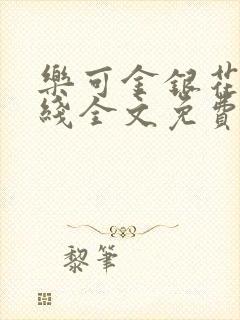 樂可金銀花
綫全文免費
黎筆